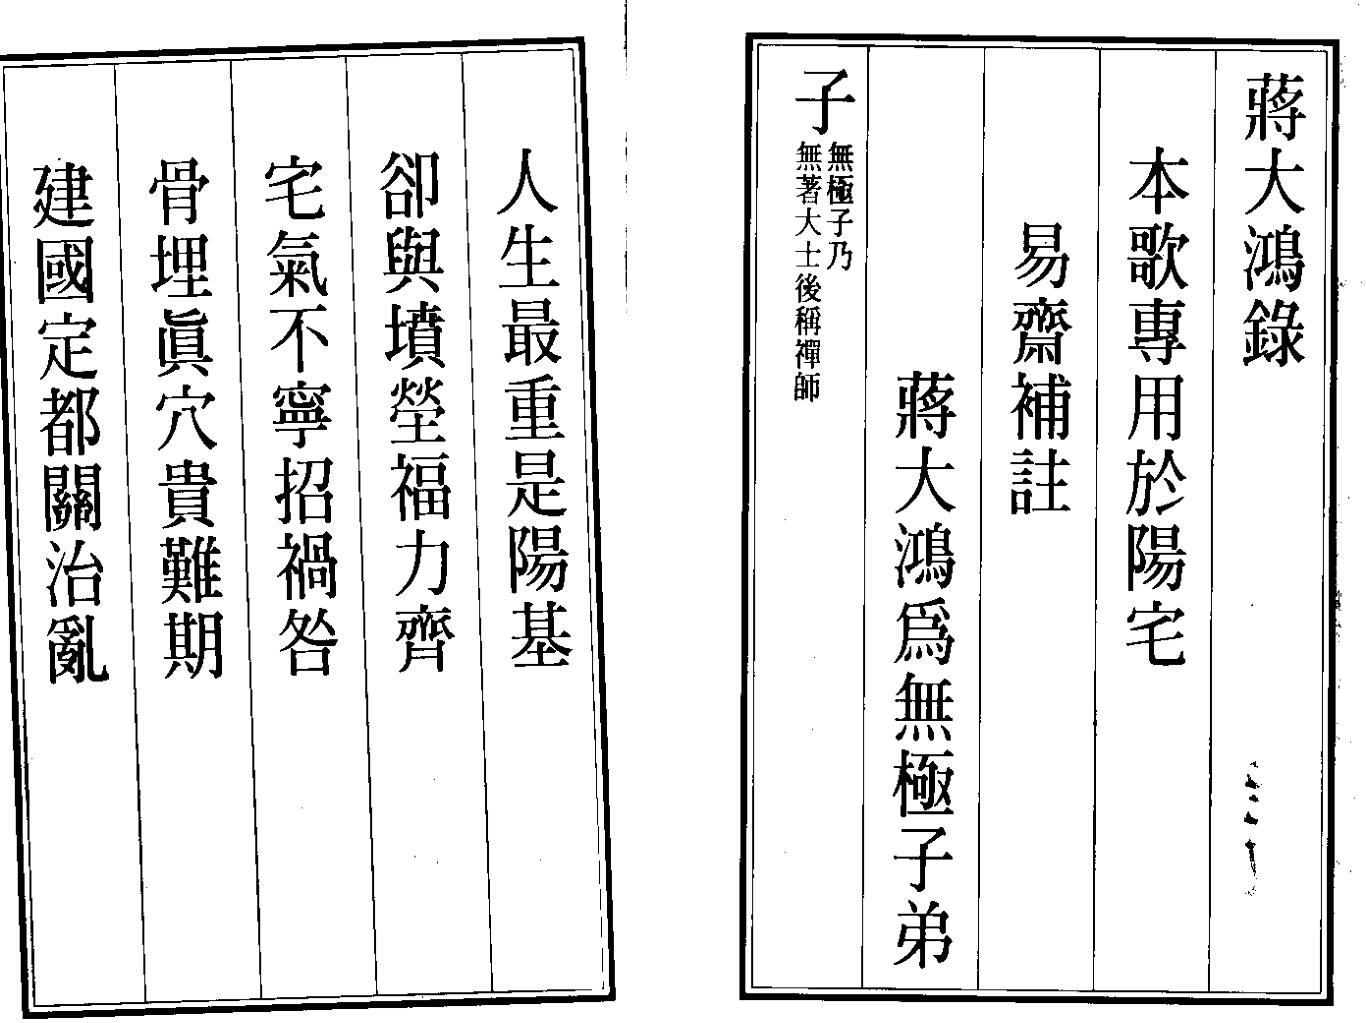 蔣大鴻錄
本歌專用於陽宅
易齋補註
蔣大鴻爲無極子弟
子
無極子乃
無著大士後稱禪師
人生最重是陽基
卻與墳塋福力齊
宅氣不寧招禍咎
骨埋眞穴貴難期
建國定都關治亂